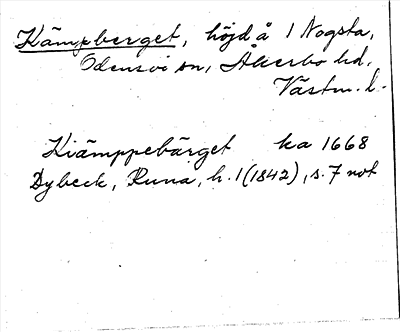 Kämpberget, höjd å 1 Nogsta,
Odensvi sn, Åkerbo hd,
Västm. l.
Kiämppebärget ka 1668
Dybeck, Runa, h. 1 (1842), s. 7 not